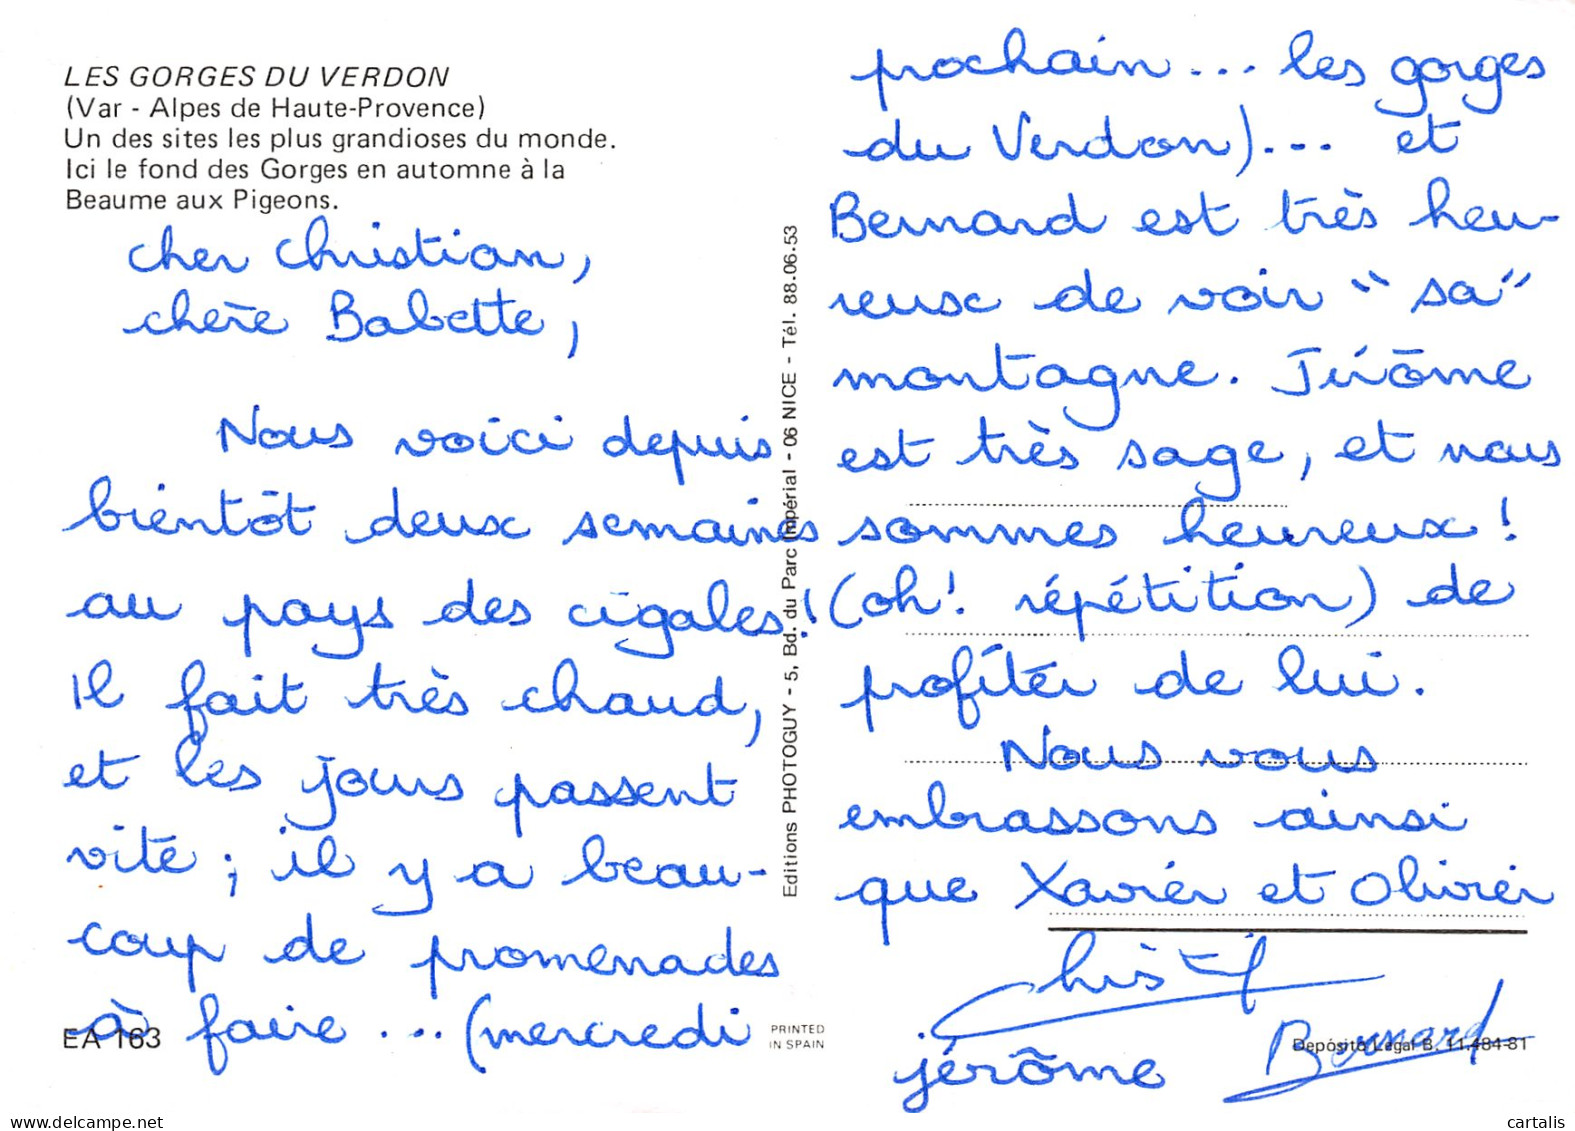 LES GORGES DU VERDON
(Var - Alpes de Haute-Provence)
Un des sites les plus grandioses du monde.
Ici le fond des Gorges en automne à la
Beaume aux Pigeons.
cher Christian,
chère Babette,
Nous voici depuis
bientôt deux semaines
au pays des cigales!
Il fait très chaud,
et les jours passent
vite ; il y a beau-
coup de promenades
à faire ... (mercredi
EA 163
Editions PHOTOGUY - 5, Bd. du Parc Impérial - 06 NICE - Tél. 88.06.53
PRINTED
IN SPAIN
prochain ... les gorges
du Verdon)... et
Bernard est très heu-
reux de voir "sa"
montagne. Jérôme
est très sage, et nous
sommes heureux!
(oh! répétition) de
profiter de lui.
Nous vous
embrassons ainsi
que Xavier et Olivier
jérôme
Bernard
Depósito Legal B. 11.484-81
cartalis